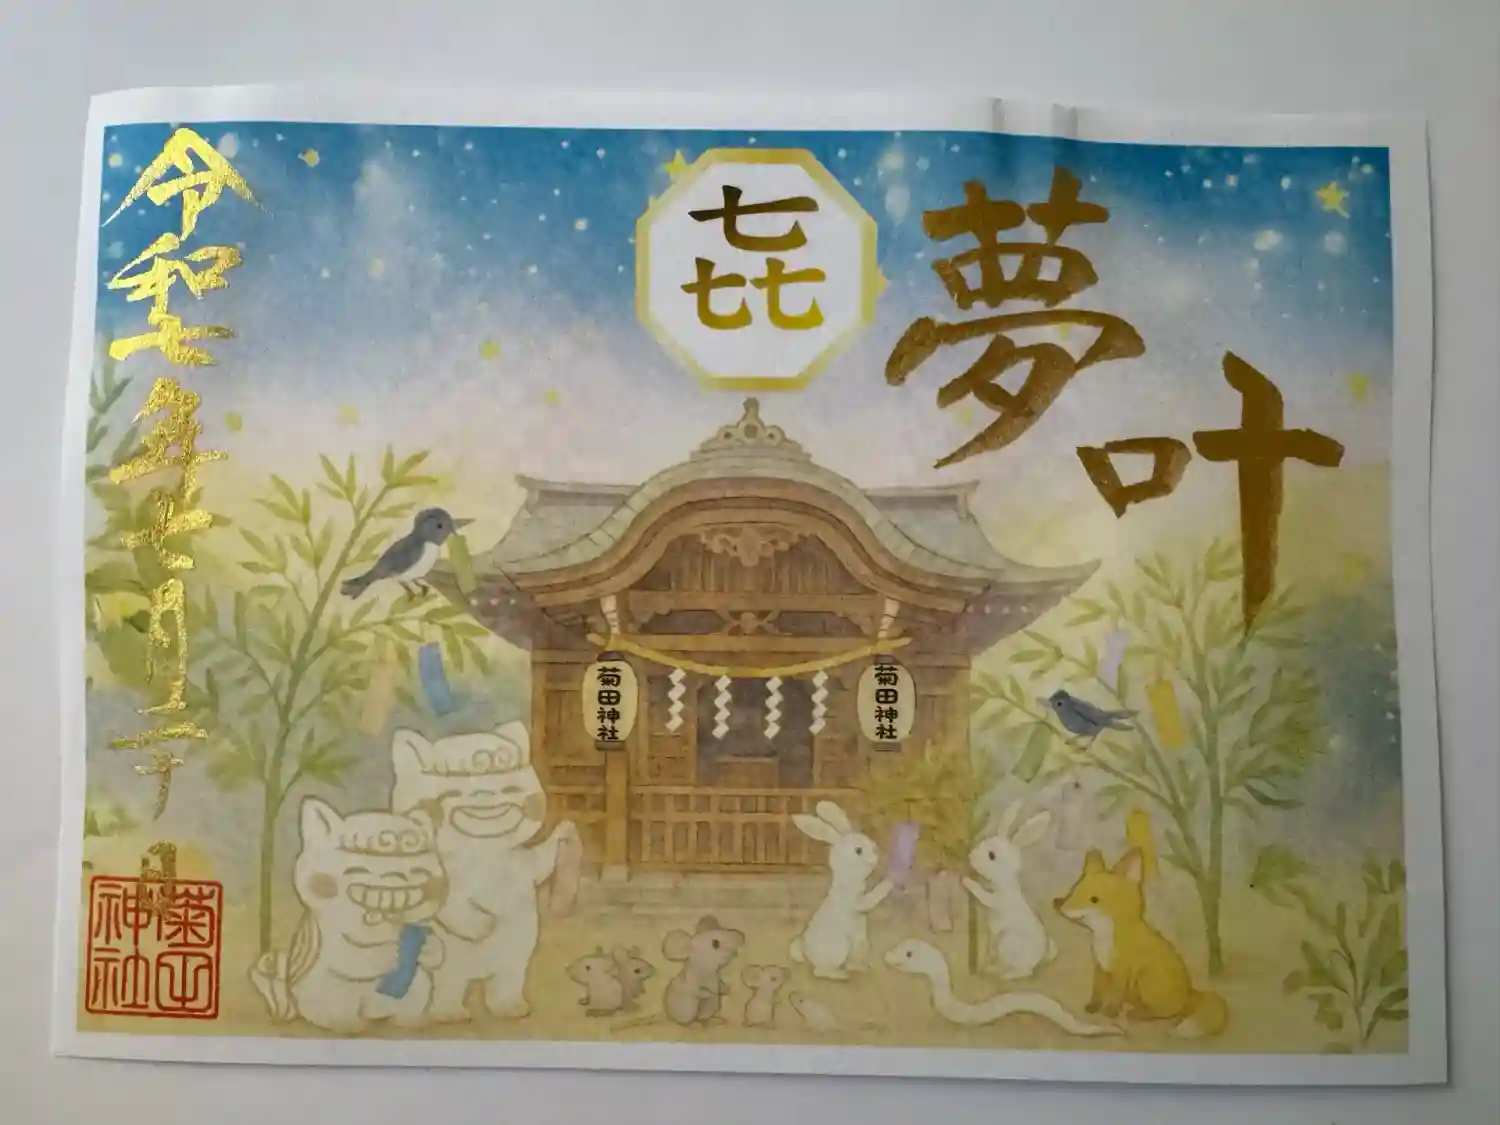 夢叶
㐂
菊田神社
菊田神社
令和七年七月二十日
菊田神社